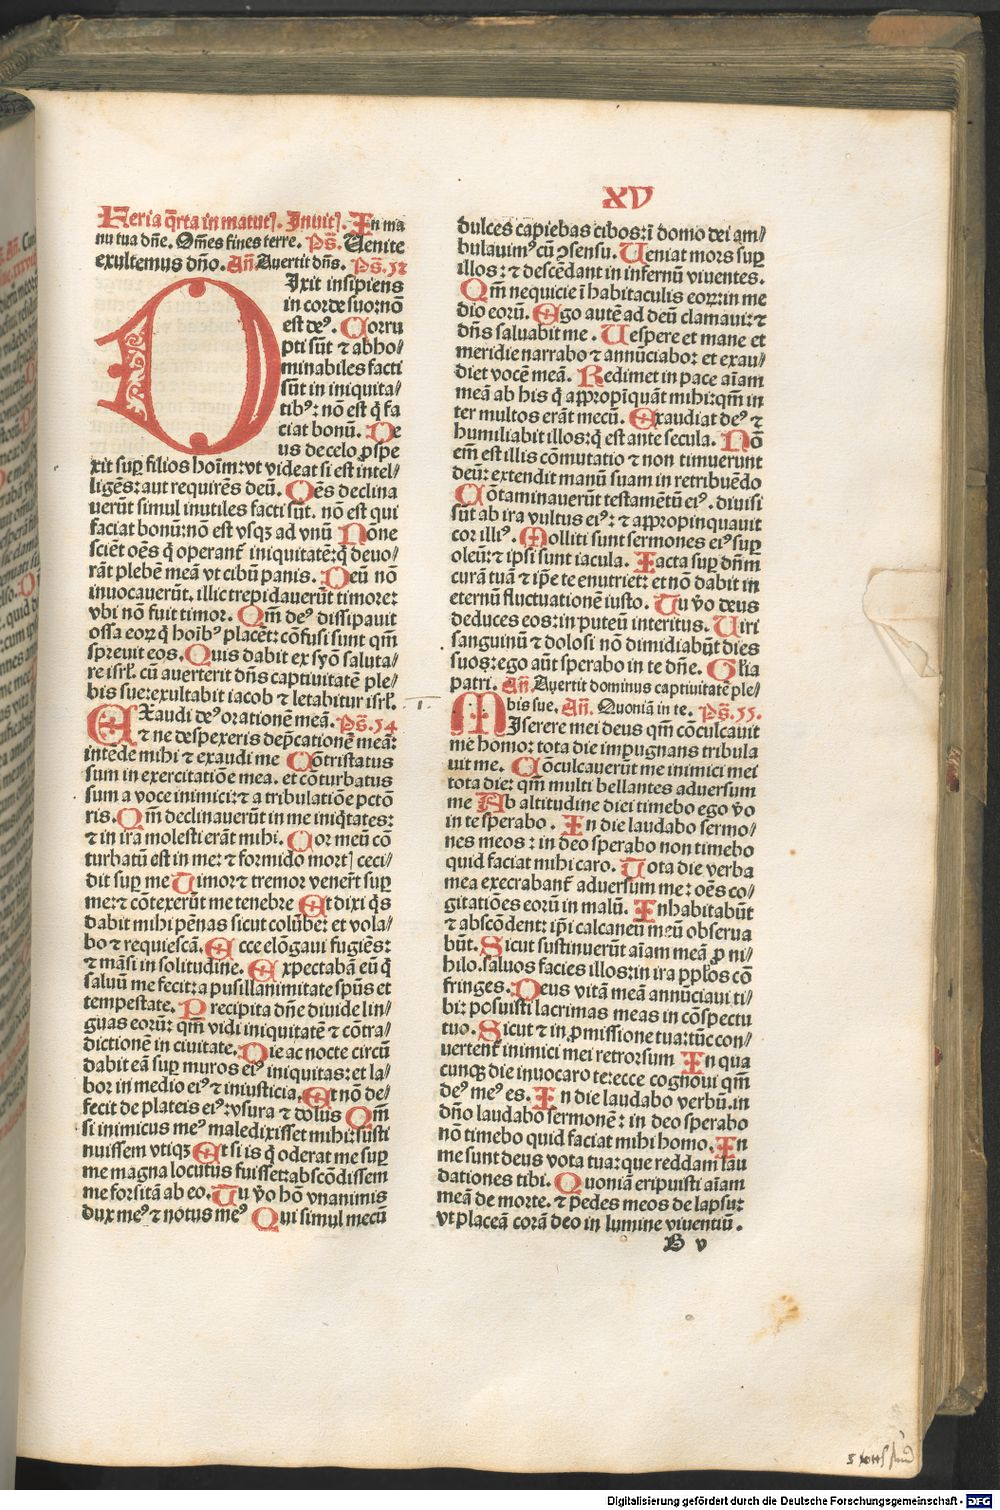 XV
Feria q̄rta in matut᷒. Inuit᷒. In ma
nu tua dn̄e. Om̄es fines terre. Ps̄. Uenite
exultemus dn̄o. An̄. Auertit dn̄s. Ps̄. 52
DIxit insipiens
in corde suo: nō
est deꝰ. Corru
pti sūt ⁊ abho/
minabiles facti
sūt in iniquita/
tibꝰ: nō est q̄ fa
ciat bonū. De
us de celo ꝓspe
xit suꝑ filios hoīm: vt videat si est intel/
ligēs: aut requirēs deū. Oēs declina
uerūt simul inutiles facti sūt. nō est qui
faciat bonū: nō est vsqꝫ ad vnū Nōne
sciēt oēs q̄ operant᷑ iniquitatē: q̄ deuo/
rāt plebēm meā vt cibū panis. Deū nō
inuocauerūt. illic trepidauerūt timore:
vbi nō fuit timor. Qm̄ deꝰ dissipauit
ossa eoꝝ q̄ hoībꝰ placēt: cōfusi sunt qm̄
spreuit eos. Quis dabit ex syō saluta/
re isrl̄. cū auerterit dn̄s captiuitatē ple/
bis sue: exultabit iacob ⁊ letabitur isrl̄.
EXaudi deꝰ orationē meā. Ps̄. 54
⁊ ne despexeris dep̄cationē meā:
intēde mihi ⁊ exaudi me Cōtristatus
sum in exercitatiōe mea. et cōturbatus
sum a voce inimici: ⁊ a tribulatiōe pctō
ris. Qm̄ declinauerūt in me iniq̄tates:
⁊ in ira molesti erāt mihi. Cor meū cō
turbatū est in me: ⁊ formido mort᷒ ceci/
dit suꝑ me Timor ⁊ tremor venert̄ suꝑ
me: ⁊ cōtexerūt me tenebre Et dixi q̄s
dabit mihi pēnas sicut colūbe: et vola/
bo ⁊ requiescā. Ecce elōgaui fugiēs:
⁊ māsi in solitudine. Expectabā eū q̄
saluū me fecit: a pusillanimitate spūs et
tempestate. Precipita dn̄e diuide lin/
guas eorū: qm̄ vidi iniquitatē ⁊ cōtra/
dictionē in ciuitate. Die ac nocte circū
dabit eā suꝑ muros eiꝰ iniquitas: et la/
bor in medio eiꝰ ⁊ iniusticia. Et nō de/
fecit de plateis eiꝰ: vsura ⁊ dolus Qm̄
si inimicus meꝰ maledixisset mihi: susti
nuissem vtiqꝫ Et si is q̄ oderat me suꝑ
me magna locutus fuisset: abscōdissem
me forsitā ab eo. Tu v̄o hō vnanimis
dux meꝰ ⁊ notus meꝰ Qui simul mecū
dulces capiebas cibos: ī domo dei am/
bulauimꝰ cū ꝯsensu. Ueniat mors suꝑ
illos: ⁊ descēdant in infernū viuentes.
Qm̄ nequicie ī habitaculis eoꝝ: in me
dio eorū. Ego autē ad deū clamaui: ⁊
dn̄s saluabit me. Uespere et mane et
meridie narrabo ⁊ annūciabo: et exau/
diet vocē meā. Redimet in pace aīam
meā ab his q̄ appropīquāt mihi: qm̄ in
ter multos erāt mecū. Exaudiat deꝰ ⁊
humiliabit illos: q̄ est ante secula. Nō
em̄ est illis cōmutatio ⁊ non timuerunt
deū: extendit manū suam in retribuēdo
Cōtaminauerūt testamētū eiꝰ. diuisi
sūt ab ira vultus eiꝰ: ⁊ appropinquauit
cor illiꝰ. Molliti sunt sermones eiꝰ suꝑ
oleū: ⁊ ipsi sunt iacula. Iacta suꝑ dn̄m
curā tuā ⁊ ip̄e te enutriet: et nō dabit in
eternū fluctuationē iusto. Tu v̄o deus
deduces eos: in puteū interitus. Uiri
sanguinū ⁊ dolosi nō dimidiabūt dies
suos: ego aūt sperabo in te dn̄e. Gl̄ia
patri. An̄. Auertit dominus captiuitatē ple/
bis sue. An̄. Quoniā in te. Ps̄. 55.
MIserere mei deus qm̄ cōculcauit
me homo: tota die impugnans tribula
uit me. Cōculcauerūt me inimici mei
tota die: qm̄ multi bellantes aduersum
me Ab altitudine diei timebo ego v̄o
in te sperabo. In die laudabo sermo/
nes meos: in deo sperabo non timebo
quid faciat mihi caro. Tota die verba
mea execrabant᷑ aduersum me: oēs co/
gitatiōes eorū in malū. Inhabitabūt
⁊ abscōdent: ip̄i calcaneū meū obserua
būt. Sicut sustinuerūt aīam meā ꝓ ni/
hilo. saluos facies illos: in ira ppl̄os cō
fringes. Deus vitā meā annūciaui ti/
bi: posuisti lacrimas meas in cōspectu
tuo. Sicut ⁊ in ꝓmissione tua: tūc con/
uertent᷑ inimici mei retrorsum In qua
cunqꝫ die inuocaro te: ecce cognoui qm̄
deꝰ meꝰ es. In die laudabo verbū. in
dn̄o laudabo sermonē: in deo sperabo
nō timebo quid faciat mihi homo. In
me sunt deus vota tua: que reddam lau
dationes tibi. Quoniā eripuisti aīam
meā de morte. ⁊ pedes meos de lapsu:
vt placeā corā deo in lumine viuentiū.
B v
Digitalisierung gefördert durch die Deutsche Forschungsgemeinschaft - DFG